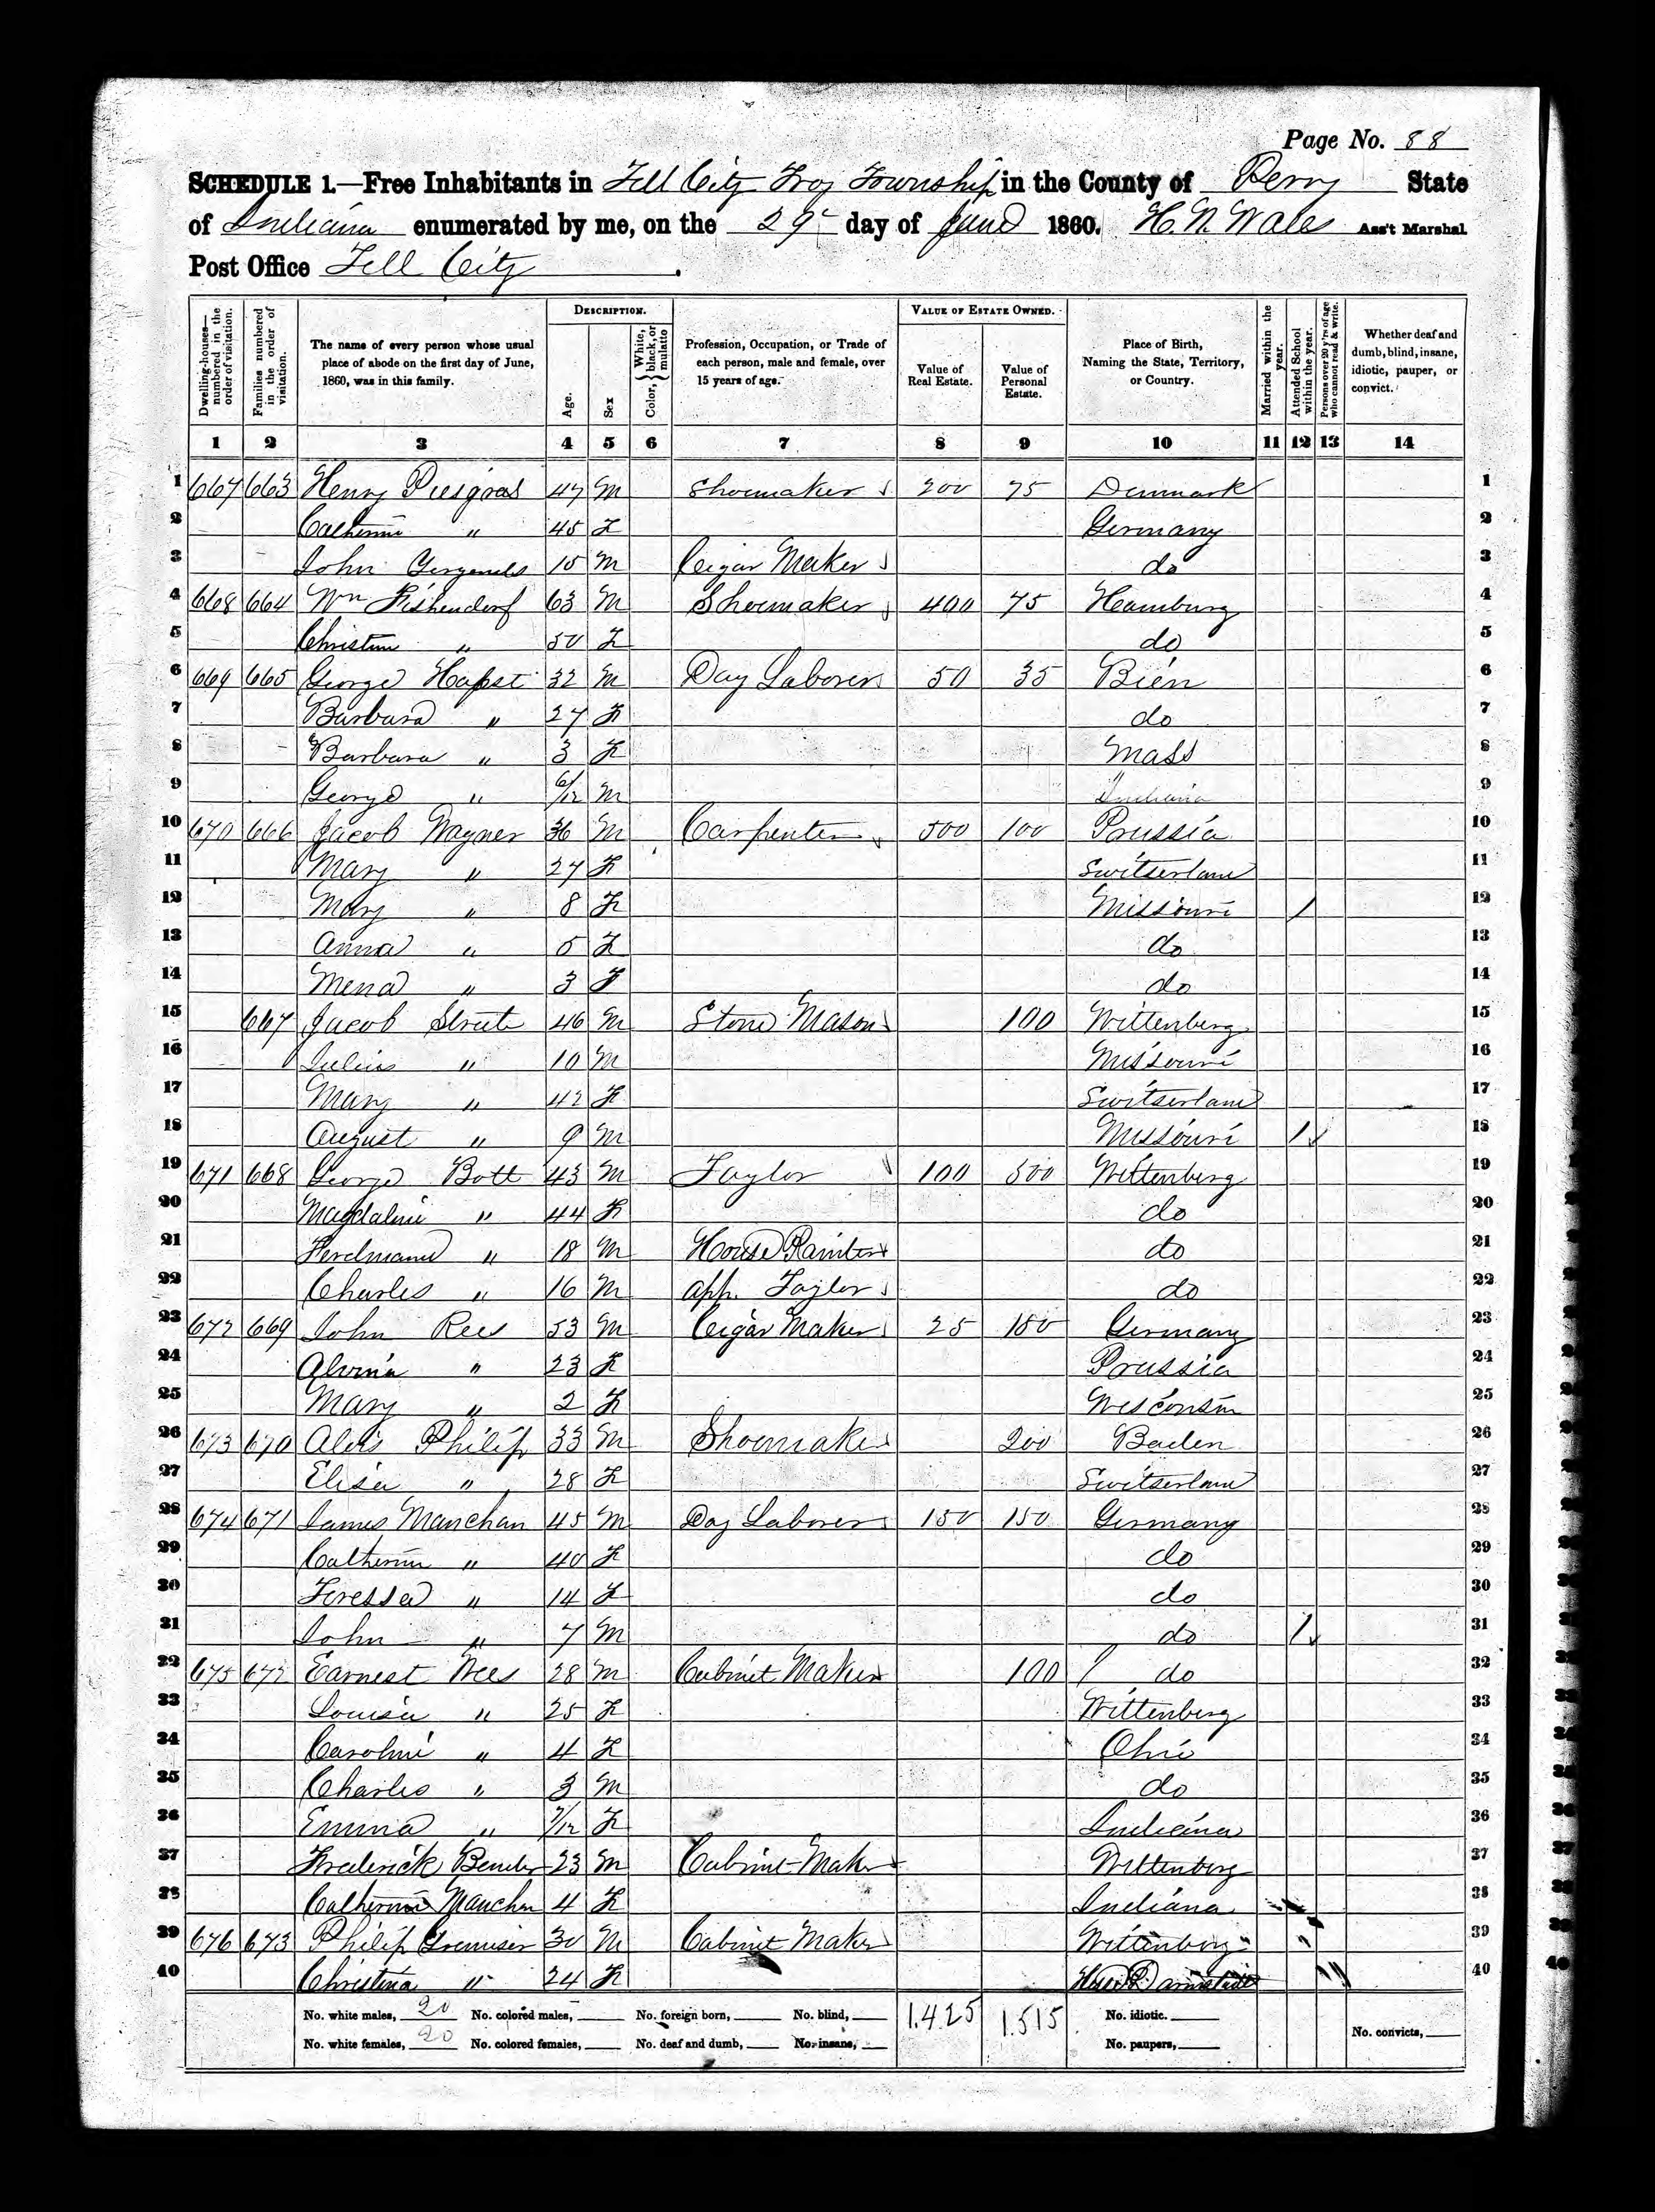 Page No. 88
SCHEDULE 1.—Free Inhabitants in Tell City Troy Township in the County of Perry State
of Indiana enumerated by me, on the 29 day of June 1860. H. N. Wales Ass't Marshal
Post Office Tell City.
Dwelling-houses—numbered in the order of visitation.
Families numbered in the order of visitation.
The name of every person whose usual place of abode on the first day of June, 1860, was in this family.
DESCRIPTION.
Age.
Sex
Color, { White, black, or mulatto
Profession, Occupation, or Trade of each person, male and female, over 15 years of age.
VALUE OF ESTATE OWNED.
Value of Real Estate.
Value of Personal Estate.
Place of Birth, Naming the State, Territory, or Country.
Married within the year.
Attended School within the year.
Persons over 20 y'rs of age who cannot read & write.
Whether deaf and dumb, blind, insane, idiotic, pauper, or convict.
1 2 3 4 5 6 7 8 9 10 11 12 13 14
1 667 663 Henry 47 M Shoemaker 200 75 Denmark 1
2 Catherine " 45 F Germany 2
3 John 15 M Cigar Maker do 3
4 668 664 Wm Fishendorf 63 M Shoemaker 400 75 Hamburg 4
5 Christine " 50 F do 5
6 669 665 George Hapst 32 M Day Laborer 50 35 Bien 6
7 Barbara " 27 F do 7
8 Barbara " 3 F Mass 8
9 George " 6/12 M Indiana 9
10 670 666 Jacob Wagner 36 M Carpenter 500 100 Prussia 10
11 Mary " 27 F Switserland 11
12 Mary " 8 F Missouri / 12
13 Anna " 5 F do 13
14 Mena " 3 F do 14
15 667 Jacob 46 M Stone Mason 100 Wittenberg 15
16 Julius " 10 M Missouri 16
17 Mary " 42 F Switserland 17
18 August " 9 M Missouri / 18
19 671 668 George Bott 43 M Taylor 100 500 Wittenberg 19
20 Magdaline " 44 F do 20
21 Ferdinand " 18 M House Painter do 21
22 Charles " 16 M app. Taylor do 22
23 672 669 John Rees 53 M Cigar Maker 25 150 Germany 23
24 Alvina " 23 F Prussia 24
25 Mary " 2 F Wisconsin 25
26 673 670 Alois Philip 33 M Shoemaker 200 Baden 26
27 Elisa " 28 F Switserland 27
28 674 671 James Manchan 45 M Day Laborer 150 150 Germany 28
29 Catherine " 40 F do 29
30 Teressa " 14 F do 30
31 John " 7 M do / 31
32 675 672 Earnest Wees 28 M Cabinet Maker 100 do 32
33 Louisa " 25 F Wittenberg 33
34 Caroline " 4 F Ohio 34
35 Charles " 3 M do 35
36 Emma " 7/12 F Indiana 36
37 Frederick Bender 23 M Cabinet Maker Wittenberg 37
38 Catherine Manchan 4 F Indiana 38
39 676 673 Philip 30 M Cabinet Maker Wittenberg 39
40 Christina " 24 F Darmstadt 40
No. white males, 20 No. colored males, No. foreign born, No. blind, 1.425 1.515 No. idiotic.
No. white females, 20 No. colored females, No. deaf and dumb, No. insane, No. paupers, No. convicts,